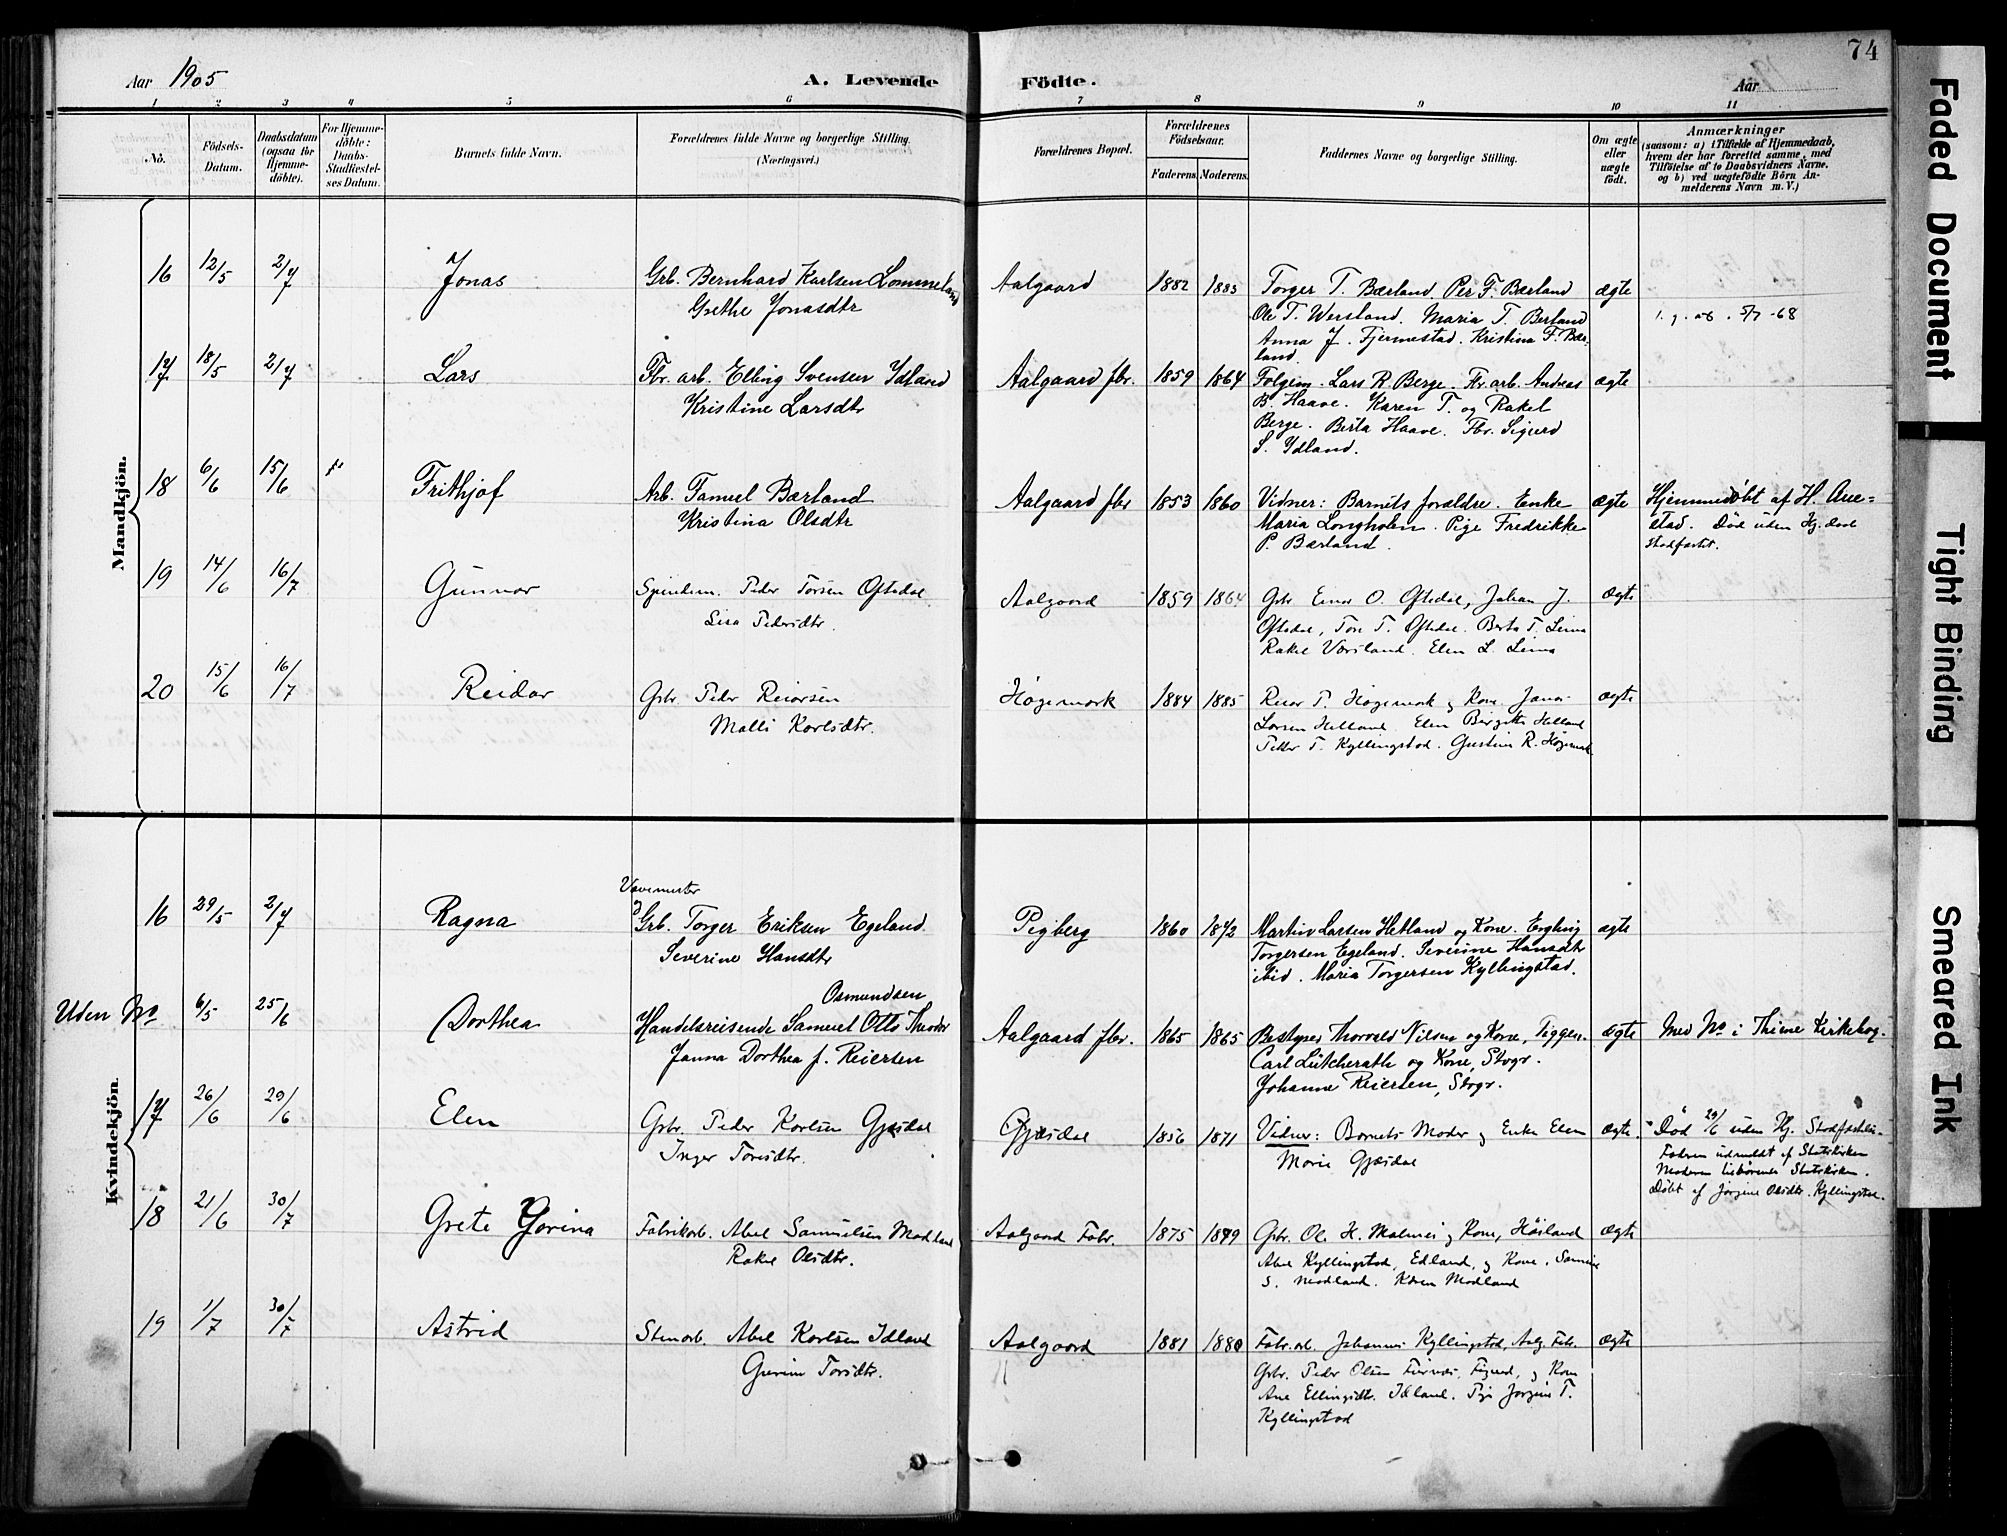 74
Aar 1905
A. Levende
Födte.
Aar
1 2 3 4 5 6 7 8 9 10 11
No.
Födsels-Datum.
Daabsdatum (ogsaa for Hjemme-döbte).
For Hjemme-döbte: Daabs-Stadfæstel-ses Datum.
Barnets fulde Navn.
Forældrenes fulde Navne og borgerlige Stilling. (Næringsvei.)
Forældrenes Bopæl.
Forældrenes Födselsaar.
Faderens. Moderens.
Faddernes Navne og borgerlige Stilling.
Om ægte eller uægte födt.
Anmærkninger
(saasom: a) i Tilfælde af Hjemmedaab, hvem der har forrettet samme, med Tilföielse af to Daabsvidners Navne. og b) ved uægtefödte Börn An-melderens Navn m. V.)
Mandkjön.
16 12/5 2/7 Jonas
Grb. Bernhard Karlsen Lommeland
Grethe Jonasdtr
Aalgaard 1882 1883
Torger T. Bærland. Per F. Bærland
Ole T. Wersland. Maria T. Berland
Anna J. Fjermestad. Kristina F. Bær-
land.
ægte
17 18/5 2/7 Lars
Fbr. arb. Elling Svensen Ydland
Kristine Larsdtr
Aalgaard fbr. 1859 1864
Folgem. Lars R. Berge. Fbr. arb. Andreas
B. Haave. Karen T. og Rakel
Berge. Berta Haave. Fbr. Sigurd
S. Ydland.
ægte
18 6/6 15/6 Frithjof
Arb. Tamuel Bærland
Kristina Olsdtr
Aalgaard fbr 1853 1860
Vidner: Barnets forældre. Enke
Maria Longholm. Pige Fredrikke
P. Bærland.
ægte
Hjemmedøbt af H. Aue-
stad. Død uden Hj. daab
stadfæstet.
19 14/6 16/7 Gunnar
Spindem. Peder Torsen Oftedal
Lisa Pedersdtr.
Aalgaard 1859 1864
Gbr Einar O. Oftedal, Johan J.
Oftedal, Tore T. Oftedal. Berta T. Lima
Rakel Varsland. Elen L. Lima
ægte
20 15/6 16/7 Reidar
Gbr Peder Reiarsen
Malli Karlsdtr.
Høgemork 1884 1885
Reiar P. Høgemork og Kone. Jonas
Larsen Helland Elen Bergitte Helland
Peder T. Kyllingstad. Gustine R. Høgemork
ægte
Kvindekjön.
16 29/5 2/7 Ragna
Vævemester
Grb. Torger Eriksen Egeland.
Severine Hansdtr
Pigberg 1860 1872
Martin Larsen Hetland og Kone. Engling
Torgersen Egeland. Severine Hansdtr
ibid. Maria Torgersen Kyllingstad.
ægte
Uden No 6/5 25/6 Dorthea
Osmundsen
Handelsreisende Samuel Otto Theodor
Janna Dorthea f. Reiersen
Aalgaard fbr. 1865 1865
Bestyrer Thorvald Nilsen og Kone, Figgen.
Carl Lütcherath og Kone, Stvgr.
Johanne Reiersen, Stvgr.
ægte
Med No i Thime Kirkebog.
17 26/6 29/6 Elen
Gbr. Peder Karlsen Gjesdal
Inger Toresdtr.
Gjesdal 1856 1871
Vidner: Barnets Moder og Enke Elen
Marie Gjesdal
ægte.
Død 29/6 uden Hj. Stadfæstelse
Faderen udmeldt af Statskirken
Moderen tilhørende Statskirken.
Døbt af Jorgine Olsdtr. Kyllingstad.
18 21/6 30/7 Grete Gorina
Fabrikarb. Abel Samuelsen Modland
Rakel Olsdtr.
Aalgaard Fabr. 1875 1879
Gbr. Ole H. Malmei og Kone, Höiland
Abel Kyllingstad, Edland, og Kone. Samine
S. Modland. Karen Modland
ægte
19 1/7 30/7 Astrid
Stenarb. Abel Karlsen Idland
Gurine Torsdtr.
Aalgaard 1881 1880
Fabr.arb. Johannes Kyllingstad, Aalg. Fabr.
Gbr. Peder Olsen og Kone
Ane Ellingsdtr. Idland. Pige Jorgine T.
Kyllingstad
ægte
Faded Document
Tight Binding
Smeared Ink